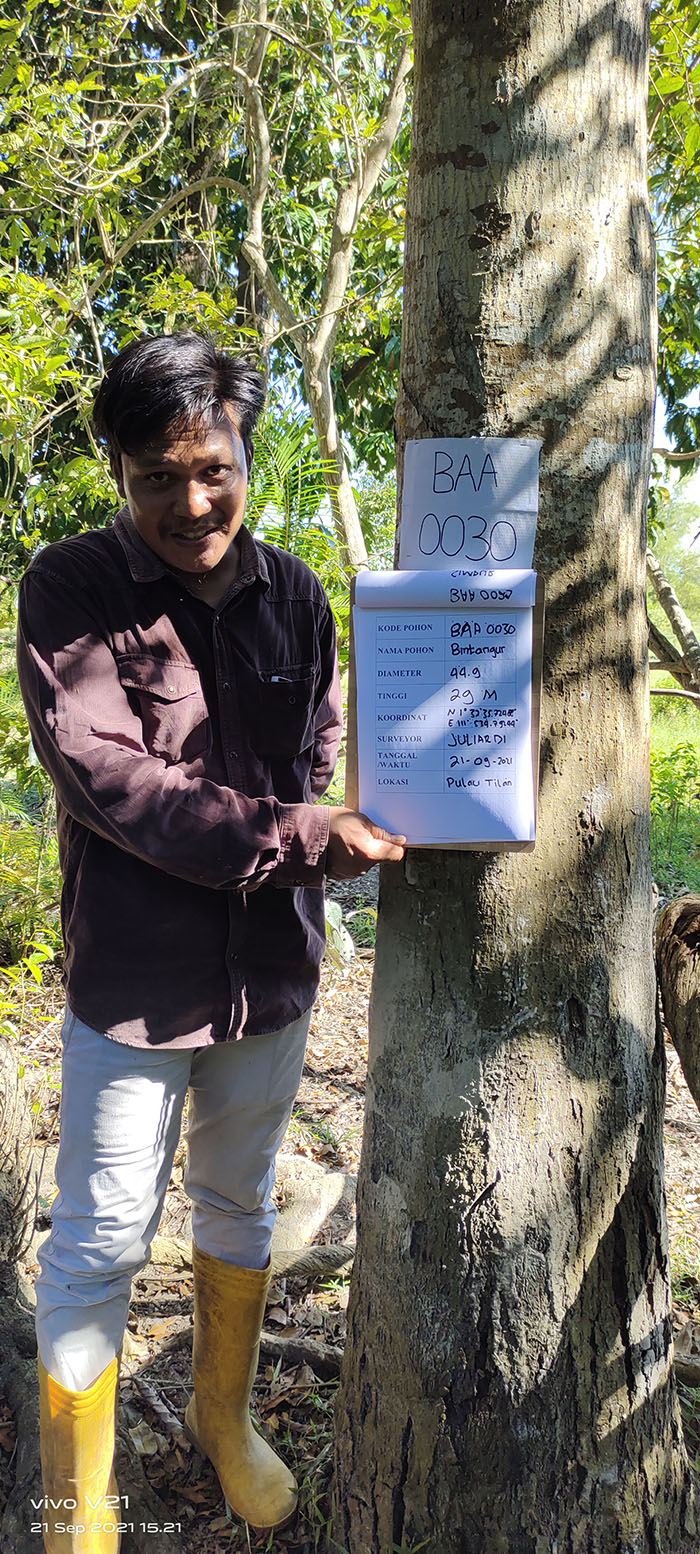 BAA
0030
BAA 0030
KODE POHON BAA 0030
NAMA POHON Bintangur
DIAMETER 44.9
TINGGI 29 M
KOORDINAT N 1° 32'
E 111°
SURVEYOR JULIARDI
TANGGAL /WAKTU 21-09-2021
LOKASI Pulau Tilan
vivo V21
21 Sep 2021 15.21